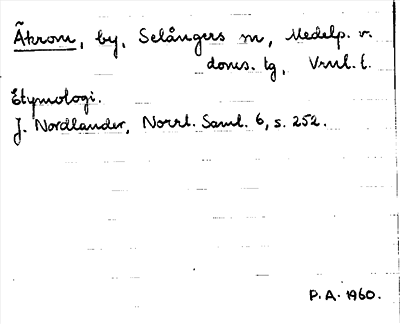 Äkrom, by, Selångers sn, Medelp. v.
doms. tg, Vrnl. l.
Etymologi.
J. Nordlander, Norrl. Saml. 6, s. 252.
P.A. 1960.